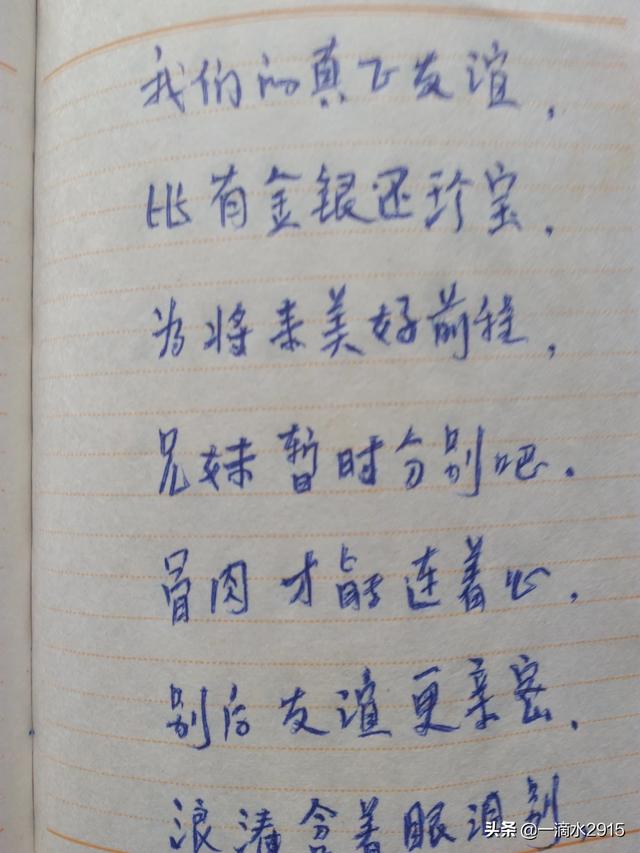 我们的真正友谊，
比有金银还珍宝，
为将来美好前程，
兄妹暂时分别吧。
骨肉才能连着心，
别后友谊更亲密，
浪涛含着眼泪别
头条 @一滴水2915